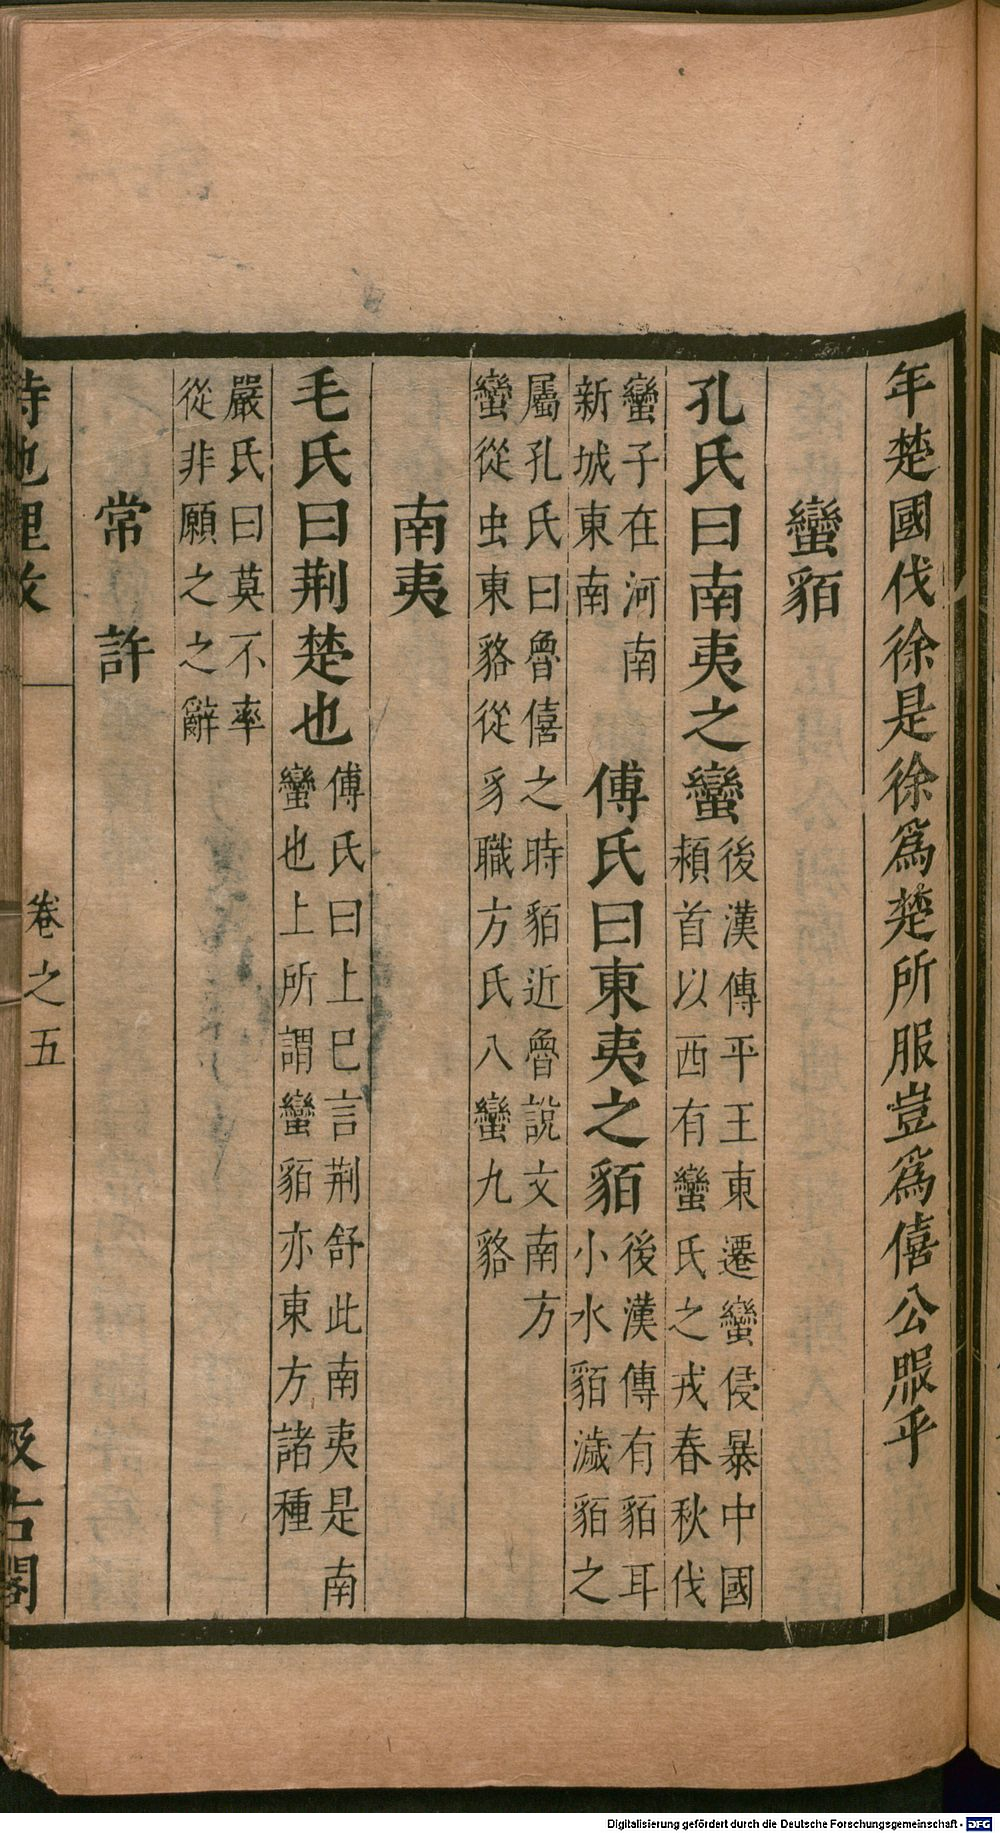 年楚國伐徐是徐爲楚所服豈爲僖公服乎
蠻貊
孔氏曰南夷之蠻
後漢傳平王東遷蠻侵暴中國
頳首以西有蠻氏之戎春秋伐
蠻子在河南
新城東南
傅氏曰東夷之貊
後漢傳有貊耳
小水貊濊貊之
屬孔氏曰魯僖之時貊近魯說文南方
蠻從虫東貉從豸職方氏八蠻九貉
南夷
毛氏曰荆楚也
傅氏曰上巳言荆舒此南夷是南
蠻也上所謂蠻貊亦東方諸種
嚴氏曰莫不率
從非願之之辭
常 許
詩地理攷
卷之五
汲古閣
Digitalisierung gefördert durch die Deutsche Forschungsgemeinschaft - DFG